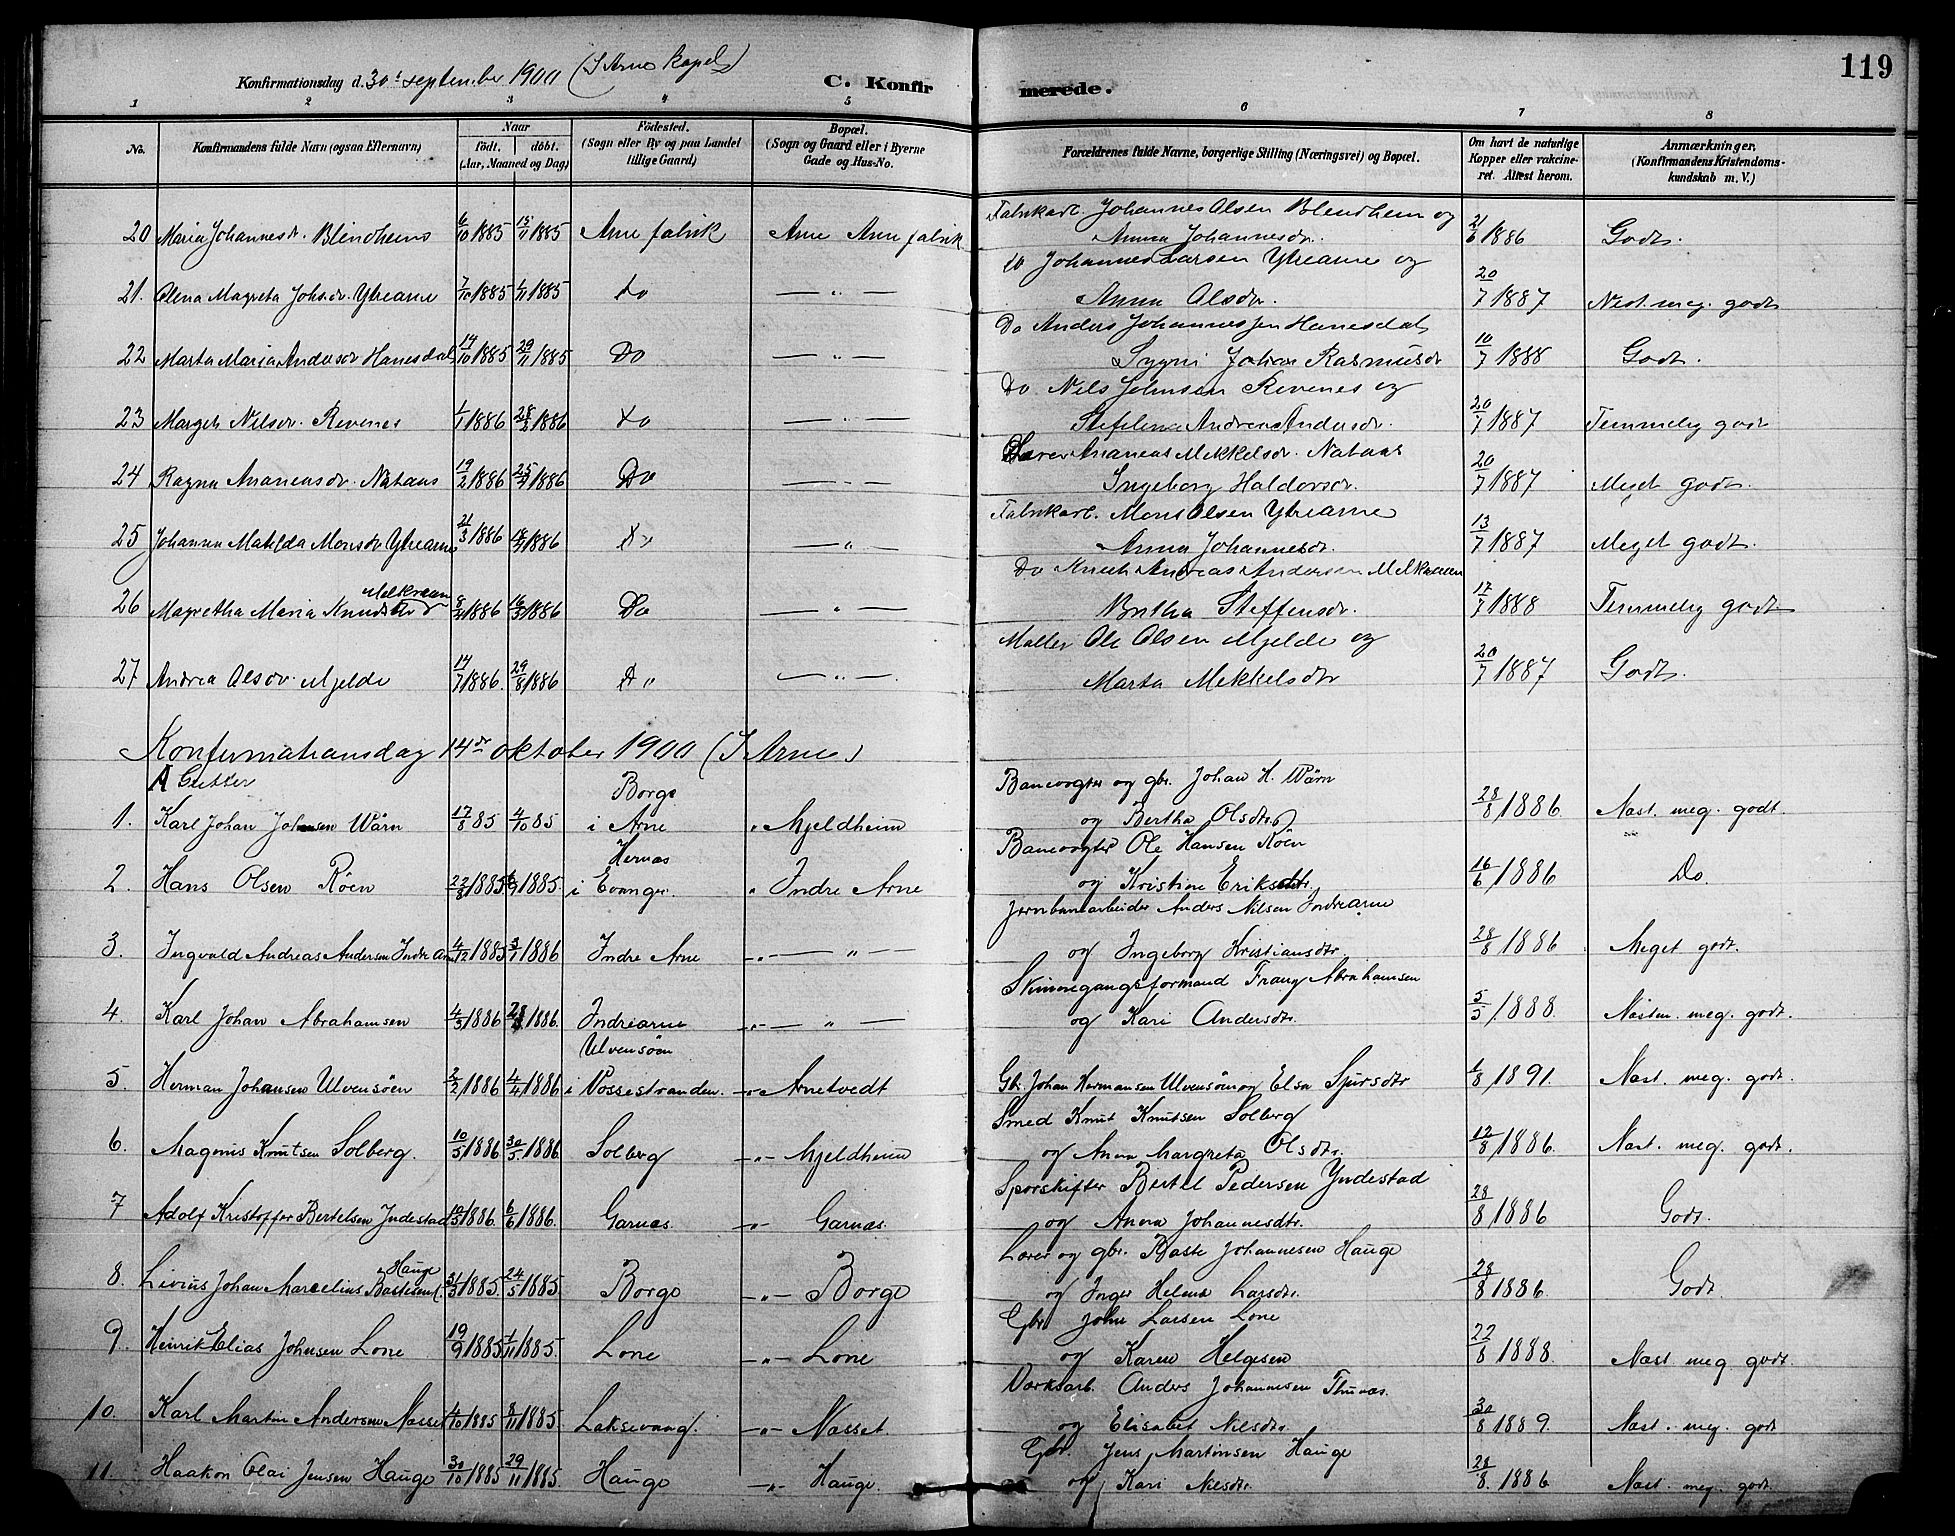 119
Konfirmationsdag d. 30t september 1900 (I Arne Kapel)
C. Konfirmerede.
1 2 3 4 5 6 7 8
No. Konfirmandens fulde Navn (ogsaa Efternavn) Naar födt. döbt. (Aar, Maaned og Dag) Födested. (Sogn eller By og paa Landet tillige Gaard) Bopæl. (Sogn og Gaard eller i Byerne Gade og Hus-No. Forældrenes fulde Navne, borgerlige Stilling (Næringsvei) og Bopæl. Om havt de naturlige Kopper eller vakcineret. Attest herom. Anmærkninger, (Konfirmandens Kristendomskundskab m. V.)
Fabrikarb. Johannes Olsen Blendheim og
20 Maria Johannesdr. Blindheim 6/10 1885 15/11 1885 Arne fabrik Arne Arne fabrik Anna Johannesdr. 21/6 1886 Godt.
Do Johannes Larsen Ytrearne og
21. Olena Magreta Johsdr. Ytrearne 7/10 1885 1/11 1885 Do — " — Anna Olsdr. 20/7 1887 Nest. meg. godt
Do Anders Johannesen Hanesdal
22 Marta Maria Andersdr Hanesdal 14/10 1885 29/11 1885 Do — " — Johan Rasmusdr 10/7 1888 Godt.
Do. Nils Johnsen Revenes og
23 Margit Nilsdr. Revenes 1/1 1886 28/2 1886 Do — " — Andersdr. 20/7 1887 Temmelig godt
Ananias Mikkelsdr. Nataas
24 Ragna Ananiasdr. Nataas 19/2 1886 25/4 1886 Do — " — Ingeborg Haldorsdr. 20/7 1887 Meget godt.
Fabrikarb. Mons Olsen Ytrearne
25 Johanna Matilda Monsdr Ytrearne 21/3 1886 18/4 1886 Do — " — Anna Johannesdr. 13/7 1887 Meget godt.
Do Knut Andreas Andersen Melkeraaen
Melkraaen
26 Magretha Maria Knudsdr 8/4 1886 16/5 1886 Do — " — Britha Steffensdr. 17/7 1888 Temmelig godt
Maller Ole Olsen Mjelde og
27 Andrea Olsdr. Mjelde 14/7 1886. 29/8 1886 Do — " — Marta Mikkelsdtr 20/7 1887 Godt.
Konfirmationsdag 14de oktober 1900 (I Arne)
A Gutter Borge Banevogter og gbr. Johan H. Wärn
1. Karl Johan Johansen Wärn 17/8 85 4/10 85 i Arne " Mjeldheim og Bertha Olsdtr 28/8 1886 Næst. meg. godt.
Hernæs Banevogter Ole Hansen Röen
2. Hans Olsen Röen 22/8 1885 6/9 1885. i Evanger. " Indre Arne og Kristine Eriksdtr. 16/6 1886 Do.
Jernbanearbeider Anders Nilsen Indrearne
3. Ingvald Andreas Andersen Indre Arne 4/12 1885 3/1 1886 Indre Arne — " — og Ingeborg Kristiansdtr. 28/8 1886 Meget godt.
Skinnegangsformand Franz Abrahamsen
4. Karl Johan Abrahamsen 4/3 1886 1886. Indrearne — " — og Kari Andersdtr. 5/5 1888. Næsten. meg. godt.
Ulvensöen
5. Herman Johansen Ulvensöen 2/2 1886 4/4 1886 i Vossestranden. — " — Arnetvedt Gbr. Johan Hermansen Ulvensöen og Elsa Sjursdtr 1/8 1891. Næst. meg. godt.
Smed Knut Knutsen Solberg
6. Magnus Knutsen Solberg. 10/5 1886 30/5 1886 Solberg — " — Mjeldheim og Anna Margreta Olsdtr. 12/8 1886. Næst. meg. godt.
Sporskifter Bertel Pedersen Yndestad
7 Adolf Kristoffer Bertelsen Indestad 10/5 1886. 6/6 1886. Garnæs. — " — Garnæs. og Anna Johannesdtr. 28/8 1886 Godt.
Lærer og gbr. Baste Johannesen Hauge
Hauge
8. Livius Johan Marcelius Bastesen 31/3 1885. 24/5 1885. Borge — " — Borge og Inger Helena Larsdtr. 28/8 1886. Godt.
Gbr John Larsen Lone
9. Henrik Elias Johnsen Lone 19/9 1885. 1/11 1885. Lone — " — Lone og Karen Helgesen 22/8 1888. Næst. meg. godt.
Værksarb. Anders Johannesen Thunæs.
10. Karl Martin Andersen Næsset 4/10 1885 8/11 1885. Laksevaag. — " — Næsset. og Elisabet Nilsdtr. 30/8 1889. Næst. meg. godt
Gbr. Jens Martinsen Hauge
11. Haakon Olai Jensen Hauge 30/10 1885 29/11 1885. Hauge — " — Hauge. og Kari Nilsdtr. 28/8. 1886 Næst. meg. godt